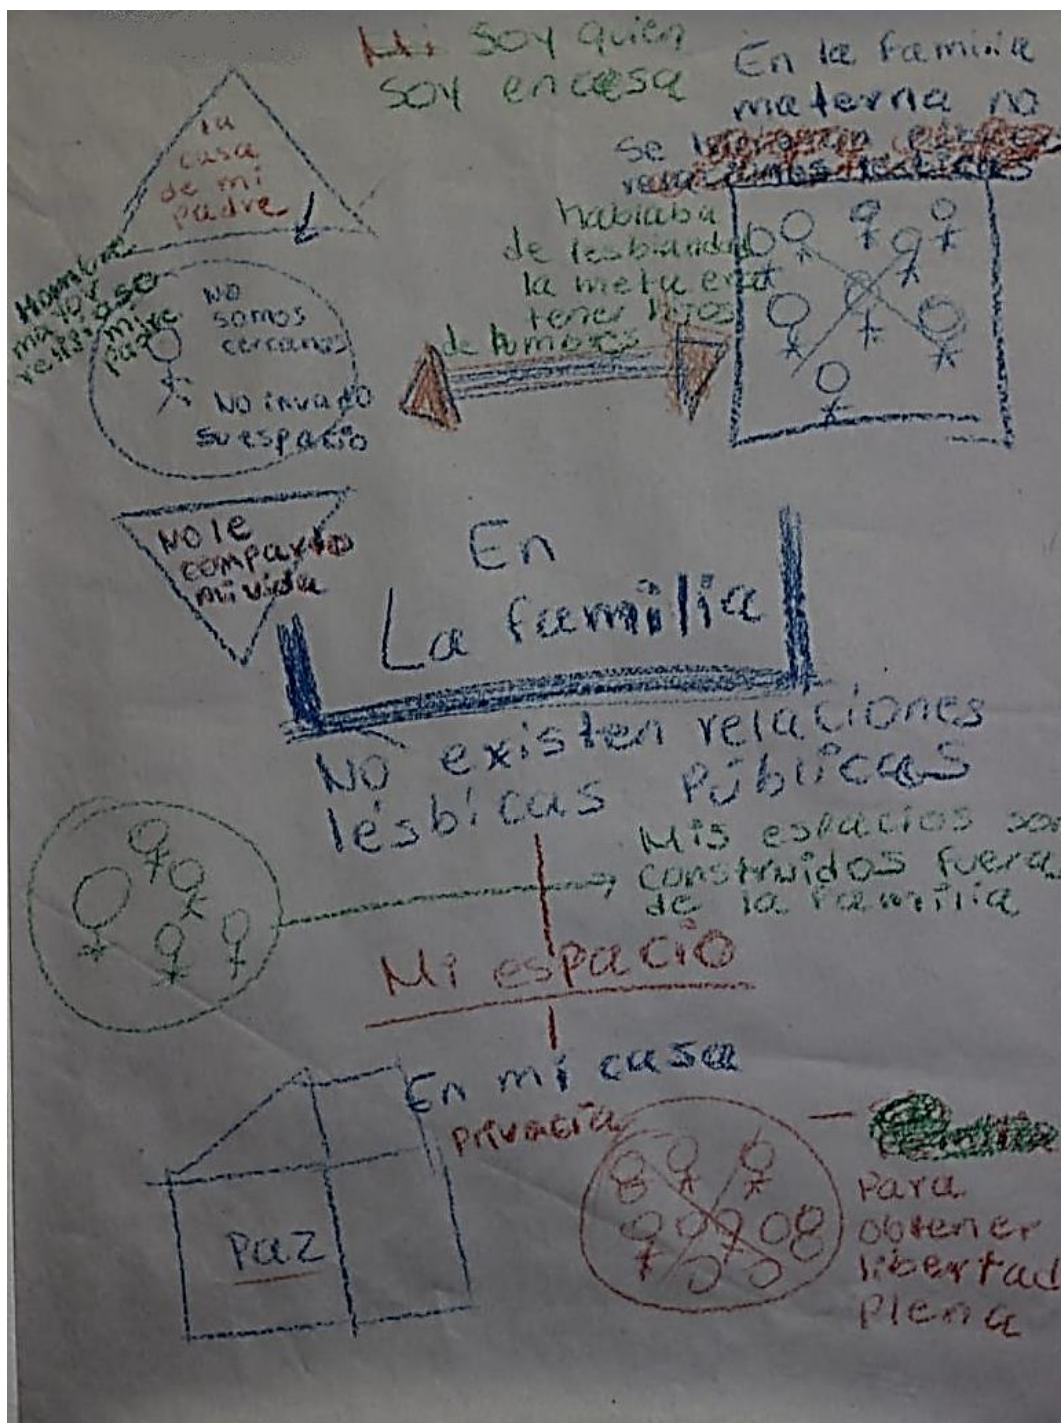 Mi Soy quien
soy en casa
En la familia
materna no
se
hablaba
de lesbiandad
la meta era
tener hijos
de hombres
la
casa
de mi
padre
Hombre
mayor
religioso
mi
padre
No
somos
cercanos
No invado
su espacio
No le
comparto
mi vida
En
La familia
No existen relaciones
lésbicas Públicas
Mis espacios son
construidos fuera
de la familia
Mi espacio
En mi casa
privacia
Paz
Para
obtener
libertad
Plena